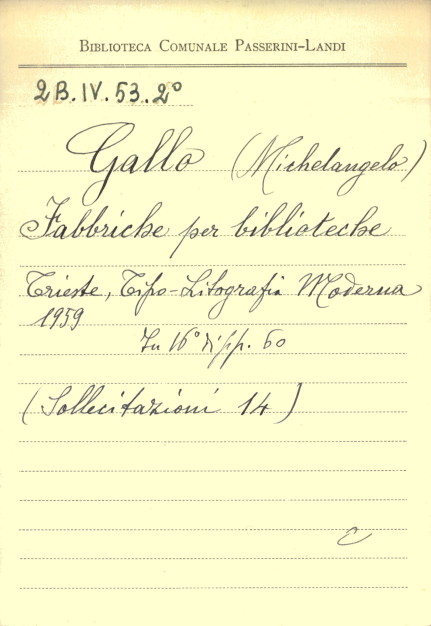 BIBLIOTECA COMUNALE PASSERINI-LANDI
2B.IV.53.2°
Gallo (Michelangelo)
Fabbriche per biblioteche
Trieste, Tipo-Litografia Moderna
1959
In 16° di pp. 60
(Sollecitazioni 14)
C